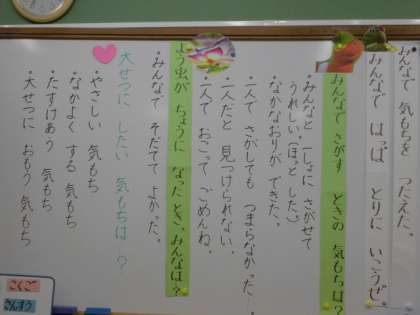 みんなで 気もちを つたえた。
みんなで はっぱ とりに いこうぜ。
みんなで さがす ときの 気もちは?
・みんなと 一しょに さがせて
うれしい。(ほっと した。)
なかなおりが できた。
・一人で さがしても つまらなかった…
・一人だと 見つけられない。
・二人で おこって ごめんね。
よう虫が ちょうに なった とき、みんなは?
・みんなで そだてて よかった。
大せつに したい 気もちは…?
・やさしい 気もち
・なかよく する 気もち
・たすけあう 気もち
・大せつに おもう 気もち
こくご
さんすう